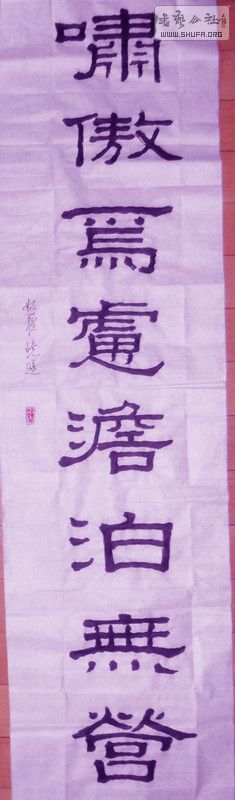 書藝公社
WWW.SHUFA.ORG
嘯傲焉慮澹泊無營